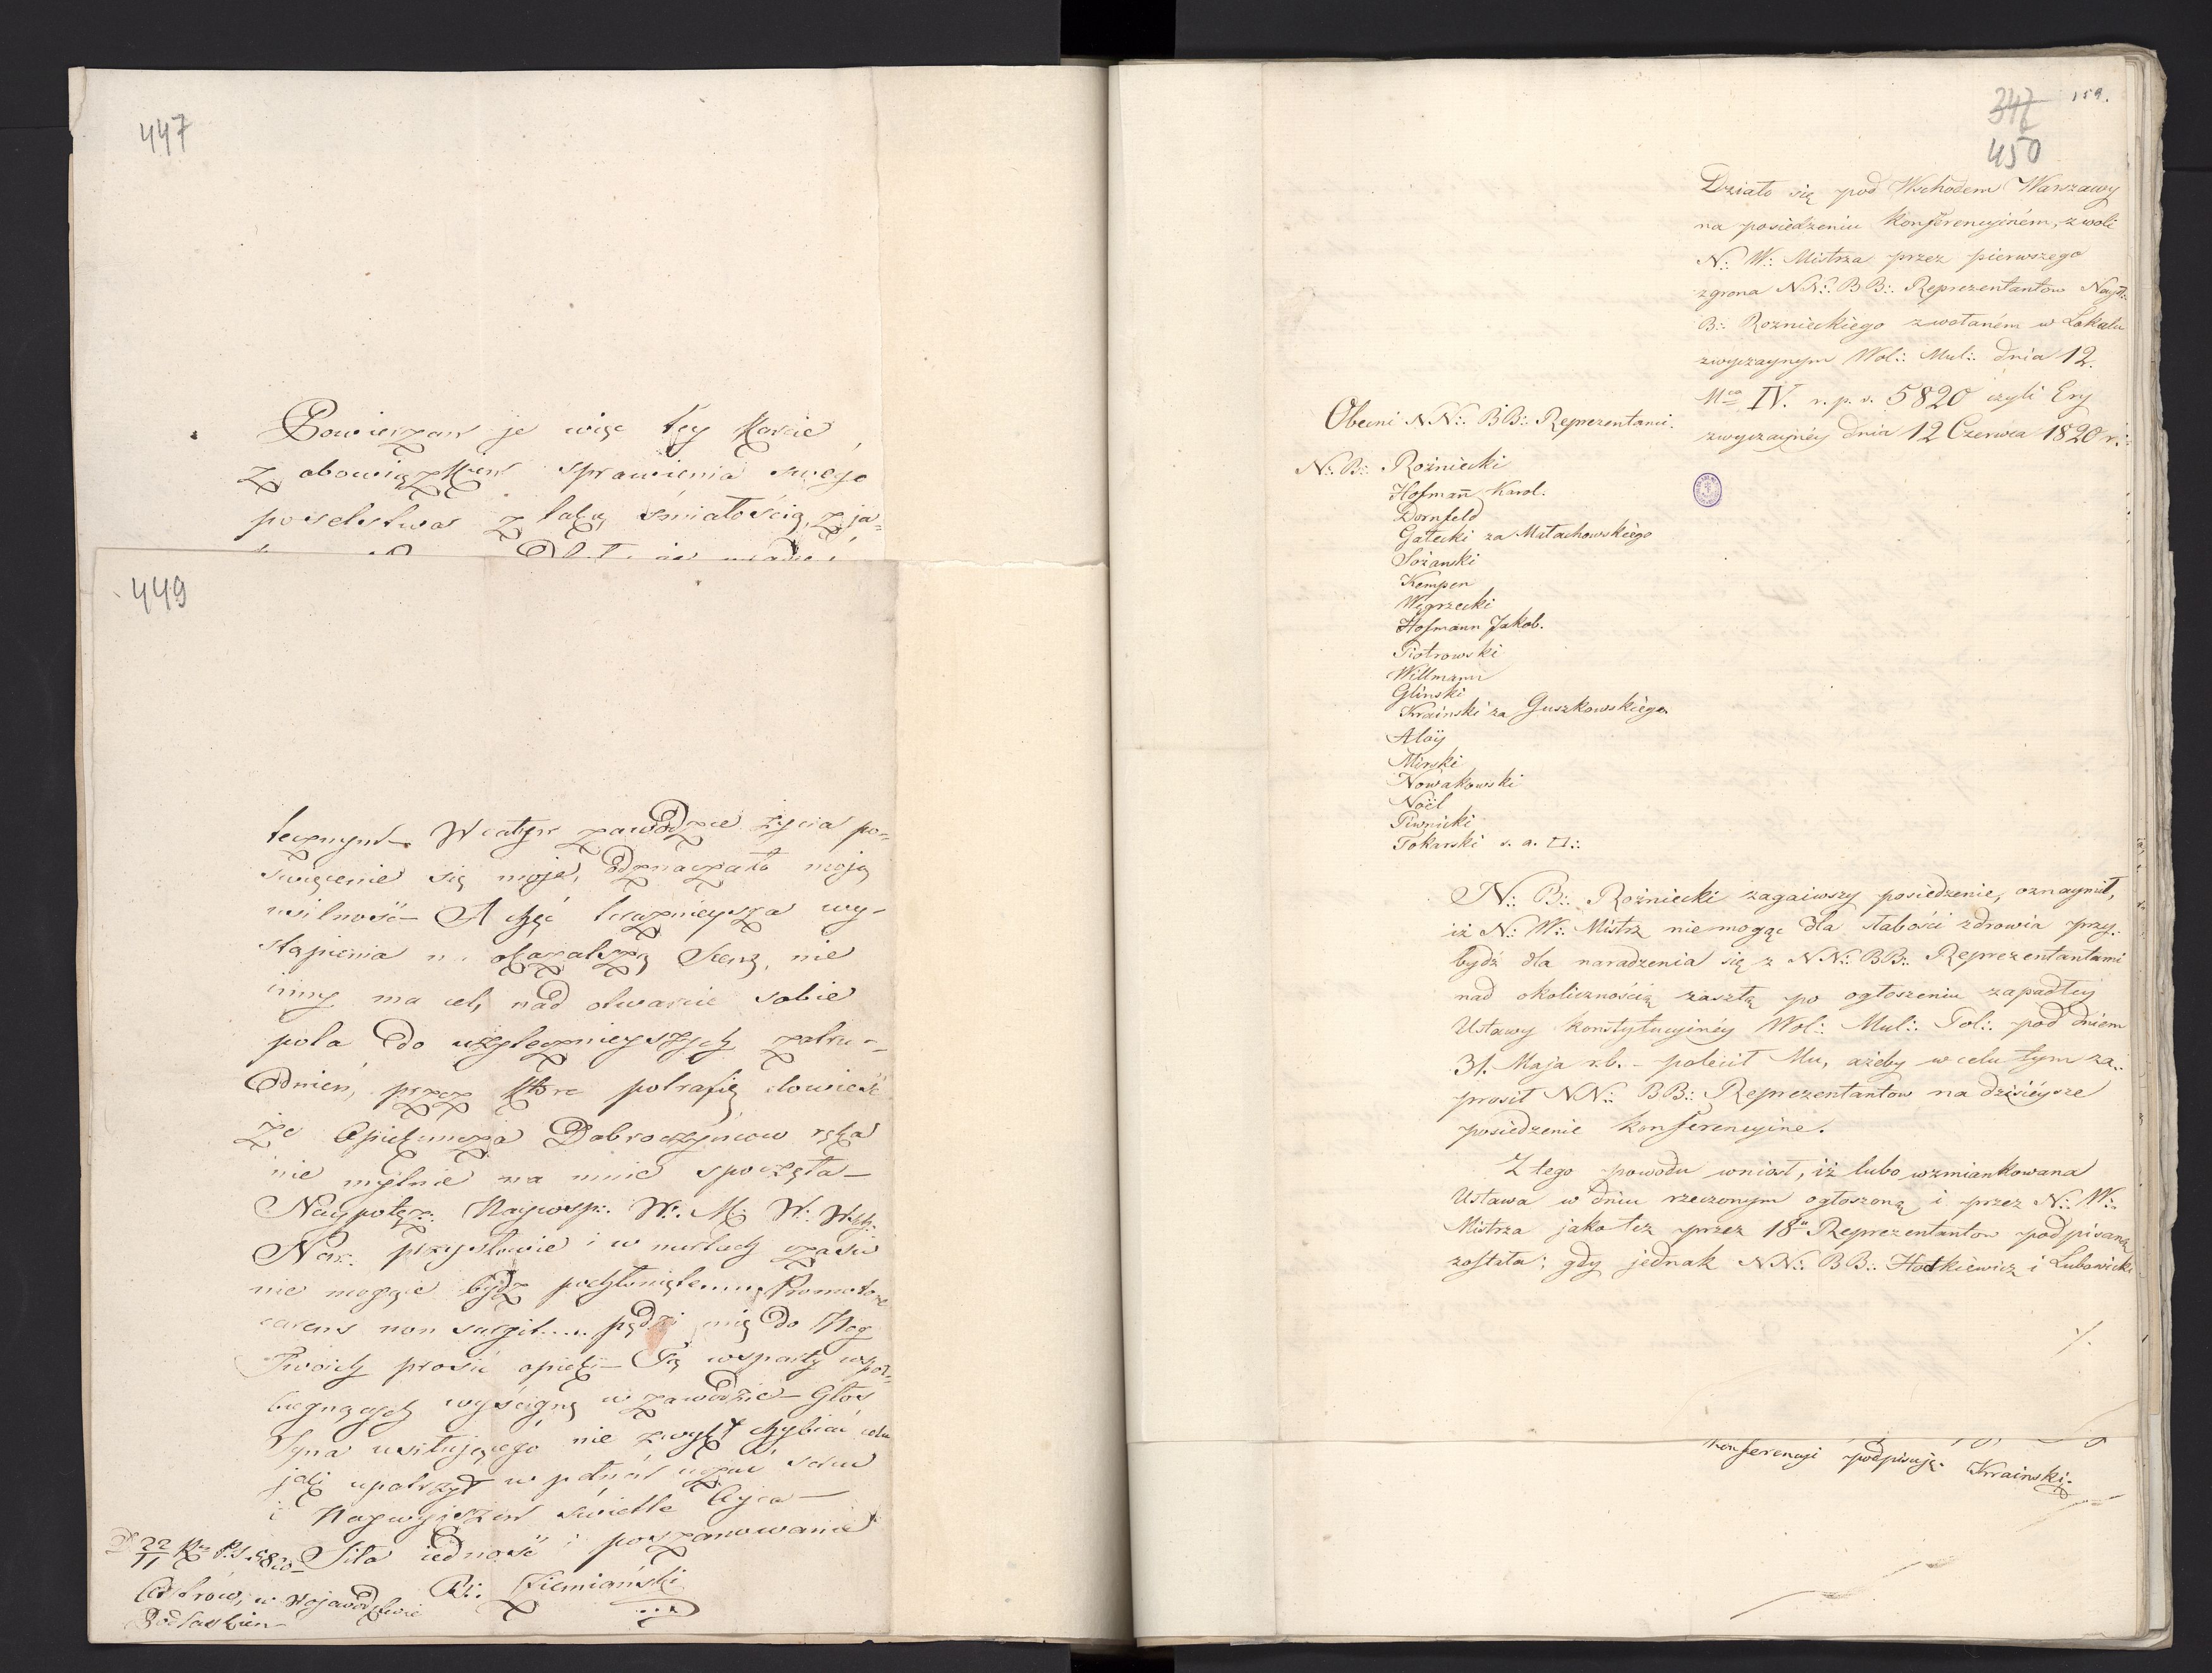 447
Powierzam je więc tey Karcie
z obowiązkiem sprawienia swego
poselstwa z taką śmiałością, z ja=
449
tecznym W całym zawodzie życia po=
święcenie się moje, odznaczało moją
usilność A chęć teraznieysza wy-
stąpienia okazalszą Scenę, nie
inny ma cel, nad otwarcie sobie
pola do użytecznieyszych zatru=
dnień, przez które potrafię dowieść
że Opiekuncza Dobroczyńców ręka
nie mylnie na mnie spoczęła
Naypotęż: Naywsp: W: M: W: Wsch:
Nar. przysłowie i w nurtach czasu
nie mogące bydź pochłoniętemu, Promotore
carens non surgit..... pędzi mię do Nóg
Twoich prosić opieki Tą wsparty współ=
biegnących wyścignę w zawodzie Głos
Syna usiłującego nie zwykł chybiać celu
jaki upatrzył w pełnych uczuć sercu
i Naywyższem świetle Oyca
Siła jedność i poszanowanie
D 22/11 Rz P.S. 5820
Ostrów, w Wojewodztwie
Podlaskiem
Br: Ziemiański
347 159.
450
Działo się pod Wschodem Warszawy
na posiedzeniu Konferencyiném, z woli
N∴ W∴ Mistrza przez pierwszego
z grona NN∴ BB∴ Reprezentantow Nayd∴
B∴ Roznieckiego zwołaném w Lokalu
zwyczaynym Wol∴ Mul∴ dnia 12.
Mca IV. r. p. s. 5820 czyli Ery
zwyczaynéy dnia 12 Czerwca 1820 r.
Obecni NN∴ BB∴ Reprezentanci.
N∴ B∴ Rożniecki
Hofmañ Karol.
Dornfeld
Gałecki za Małachowskiego
Sożanski
Kempen
Węgrzecki
Hofmann Jakob.
Piotrowski
Willmann
Glinski
Krainski za Guszkowskiego
Aloÿ
Mirski
Nowakowski
Noël
Piwnicki
Tokarski s. a. □∴
N∴ B∴ Rożniecki zagaiwszy posiedzenie, oznaymił,
iż N∴ W∴ Mistrz nie mogąc dla słabości zdrowia przy=
bydź dla naradzenia się z NN∴ BB∴ Reprezentantami
nad okolicznością zaszłą po ogłoszeniu zapadłey
Ustawy Konstytucyinéy Wol∴ Mul∴ Pol∴ pod dniem
31. Maja r.b. - polecił Mu, ażeby w celu tym za=
prosił NN∴ BB∴ Reprezentantow na dzisieysze
posiedzenie konferencyine.
Z tego powodu wniosł, iż lubo wzmiankowana
Ustawa w dniu rzeczonym ogłoszoną i przez N∴ W∴
Mistrza jako też przez 18u Reprezentantow podpisaną
została; gdy jednak NN∴ BB∴ Hodkiewicz i Lubowicki
./.
Konferencyi podpisuję. Krainski.